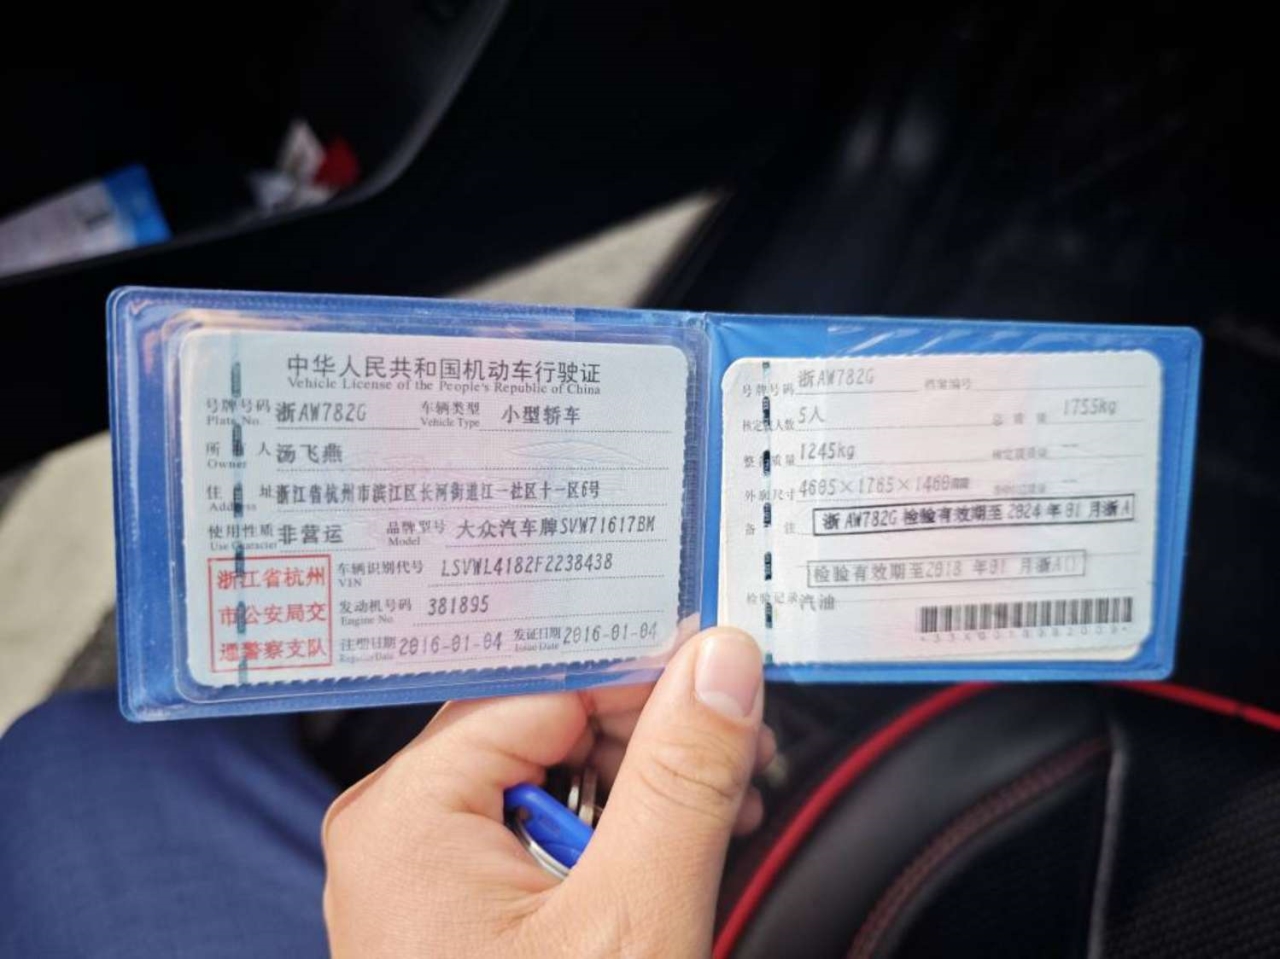 中华人民共和国机动车行驶证
Vehicle License of the People's Republic of China
号牌号码 浙AW782G 车辆类型 小型轿车
Plate No. Vehicle Type
所 人 汤飞燕
Owner
住 址 浙江省杭州市滨江区长河街道江一社区十一区6号
Address
使用性质 非营运 品牌型号 大众汽车牌SVW71617BM
Use Character Model
浙江省杭州
市公安局交
通警察支队
车辆识别代号 LSVWL4182F2238438
VIN
发动机号码 381895
Engine No.
注册日期 2016-01-04 发证日期 2016-01-04
Issue Date
号牌号码 浙AW782G 档案编号
核定 人数 5人 总质量 1755kg
整 质量 1245kg 核定载质量 --
外廓尺寸 4605×1765×1460 --
备 注 浙AW782G 检验有效期至2024年01月浙A
检验有效期至2018年01月浙A
检验记录 汽油